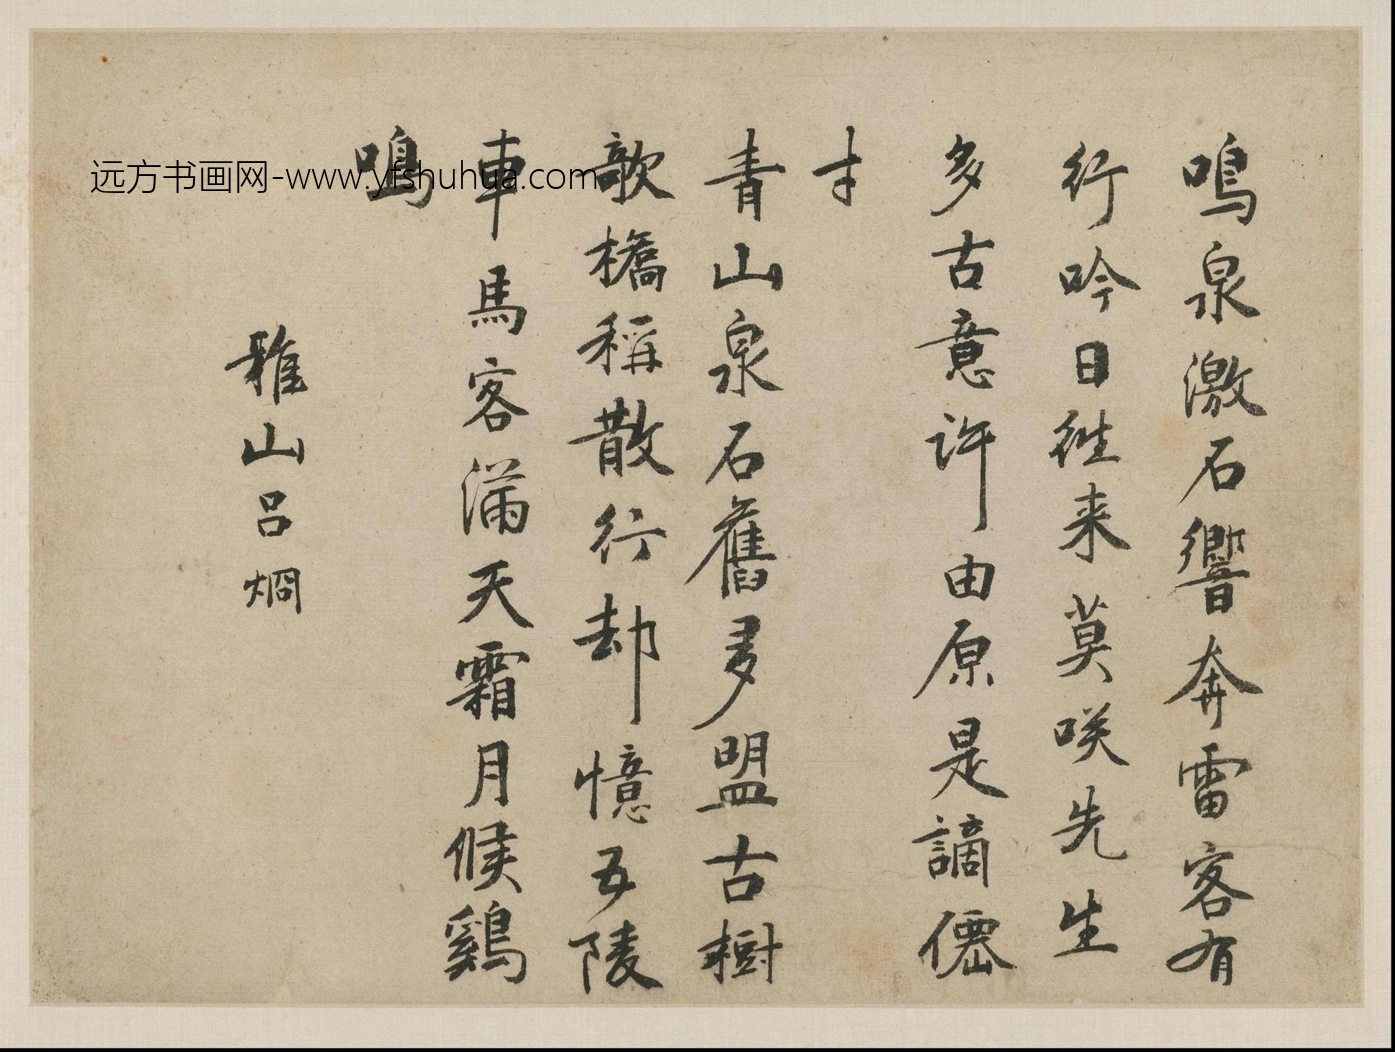 鳴泉激石響奔雷客有
行吟日往来莫咲先生
多古意許由原是謫僊
才
青山泉石舊多盟古樹
欹橋稱散行却憶五陵
車馬客滿天霜月候鷄
鳴
雅山呂㷗
远方书画网-www.yfshuhua.com